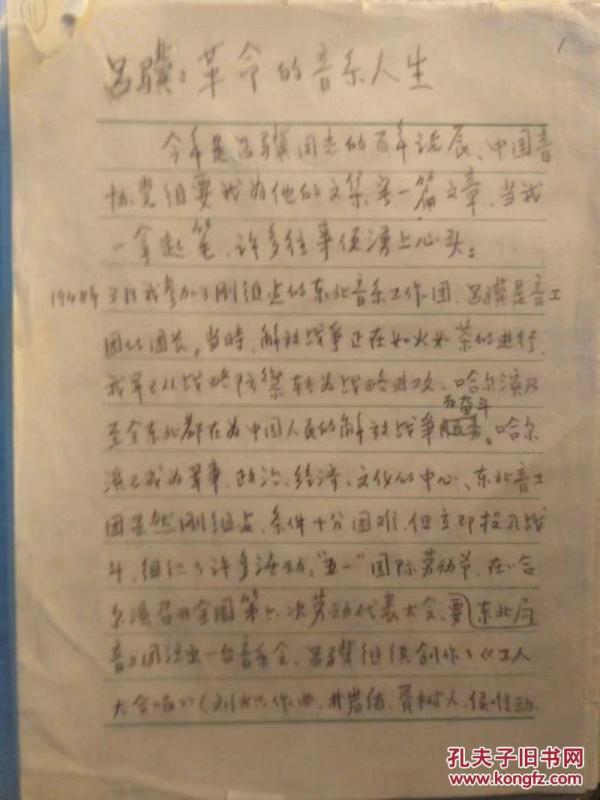 11
1
吕骥：革命的音乐人生
今年是吕骥同志的百年诞辰、中国音
协党组要我为他的文集写一篇文章，当我
一拿起笔，许多往事便涌上心头：
1948年3月我参加了刚组成的东北音乐工作团，吕骥是音工
团的团长。当时，解放战争正在如火如荼的进行，
我军已从战略防御转为战略进攻、哈尔滨及
而奋斗
至全东北都在为中国人民的解放战争服务。哈尔
滨已成为军事、政治、经济、文化的中心、东北音工
团虽然刚组成，条件十分困难，但立即投入战
斗，组织了许多活动。"五一"国际劳动节，在哈
尔滨召开全国第六次劳动代表大会，要东北局
音工团演出一台音乐会。吕骥组织创作了《工人
大合唱》（刘炽作曲，井岩盾、晋树人、侯唯动、
孔夫子旧书网
www.kongfz.com